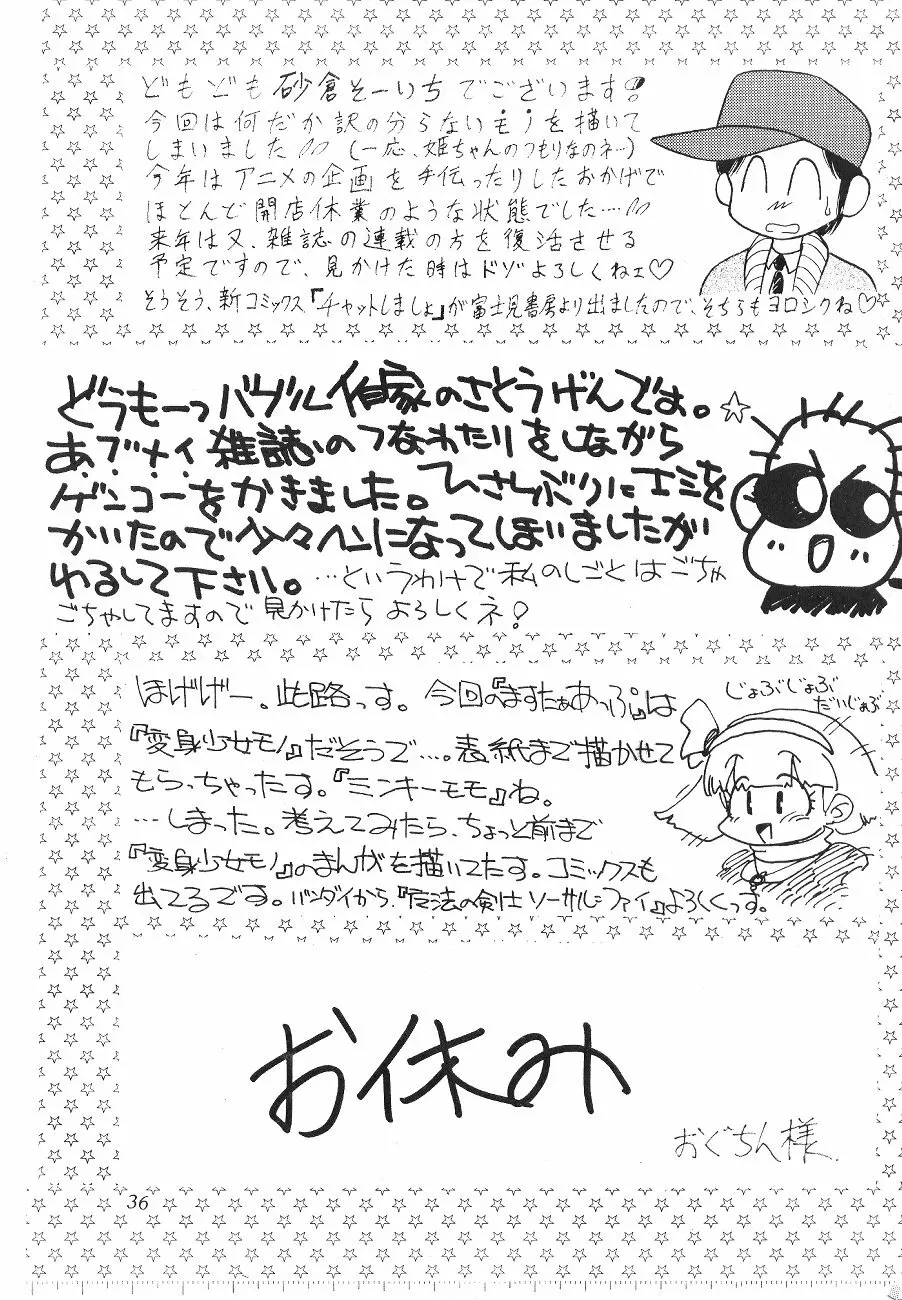 どもども砂倉そーいちでございます!
今回は何だか訳の分らないモノを描いて
しまいました (一応、姫ちゃんのつもりなのネ…)
今年はアニメの企画を手伝ったりしたおかげで
ほとんど開店休業のような状態でした…
来年は又、雑誌の連載の方を復活させる
予定ですので、見かけた時はドゾよろしくねェ♡
そうそう、新コミックス『チャットしましょ』が富士見書房より出ましたので、そちらもヨロシクね♡
どうもーっバブル作家のさとうげんでーす。☆
あ、ブ、ナ、イ、雑誌のつなわたりをしながら
ゲンコーをかきました。ひさしぶりにエミを
かいたので少々ヘンになってしまいましたが
わるして下さい。…というわけで私のしごとはごちゃ
ごちゃしてますので見かけたらよろしくネ!
ほげげー。此路っす。今回の『ますたぁあっぷ』は
『変身少女モノ』だそうで…。表紙まで描かせて
もらっちゃったす。『ミンキーモモ』ね。
…しまった。考えてみたら、ちょっと前まで
『変身少女モノ』のまんがを描いてたす。コミックスも
出てるです。バンダイから『魔法の剣士ソーサル=ファイ』よろしくっす。
じょぶじょぶ
だいじょぶ
お休み
おぐちん様
36